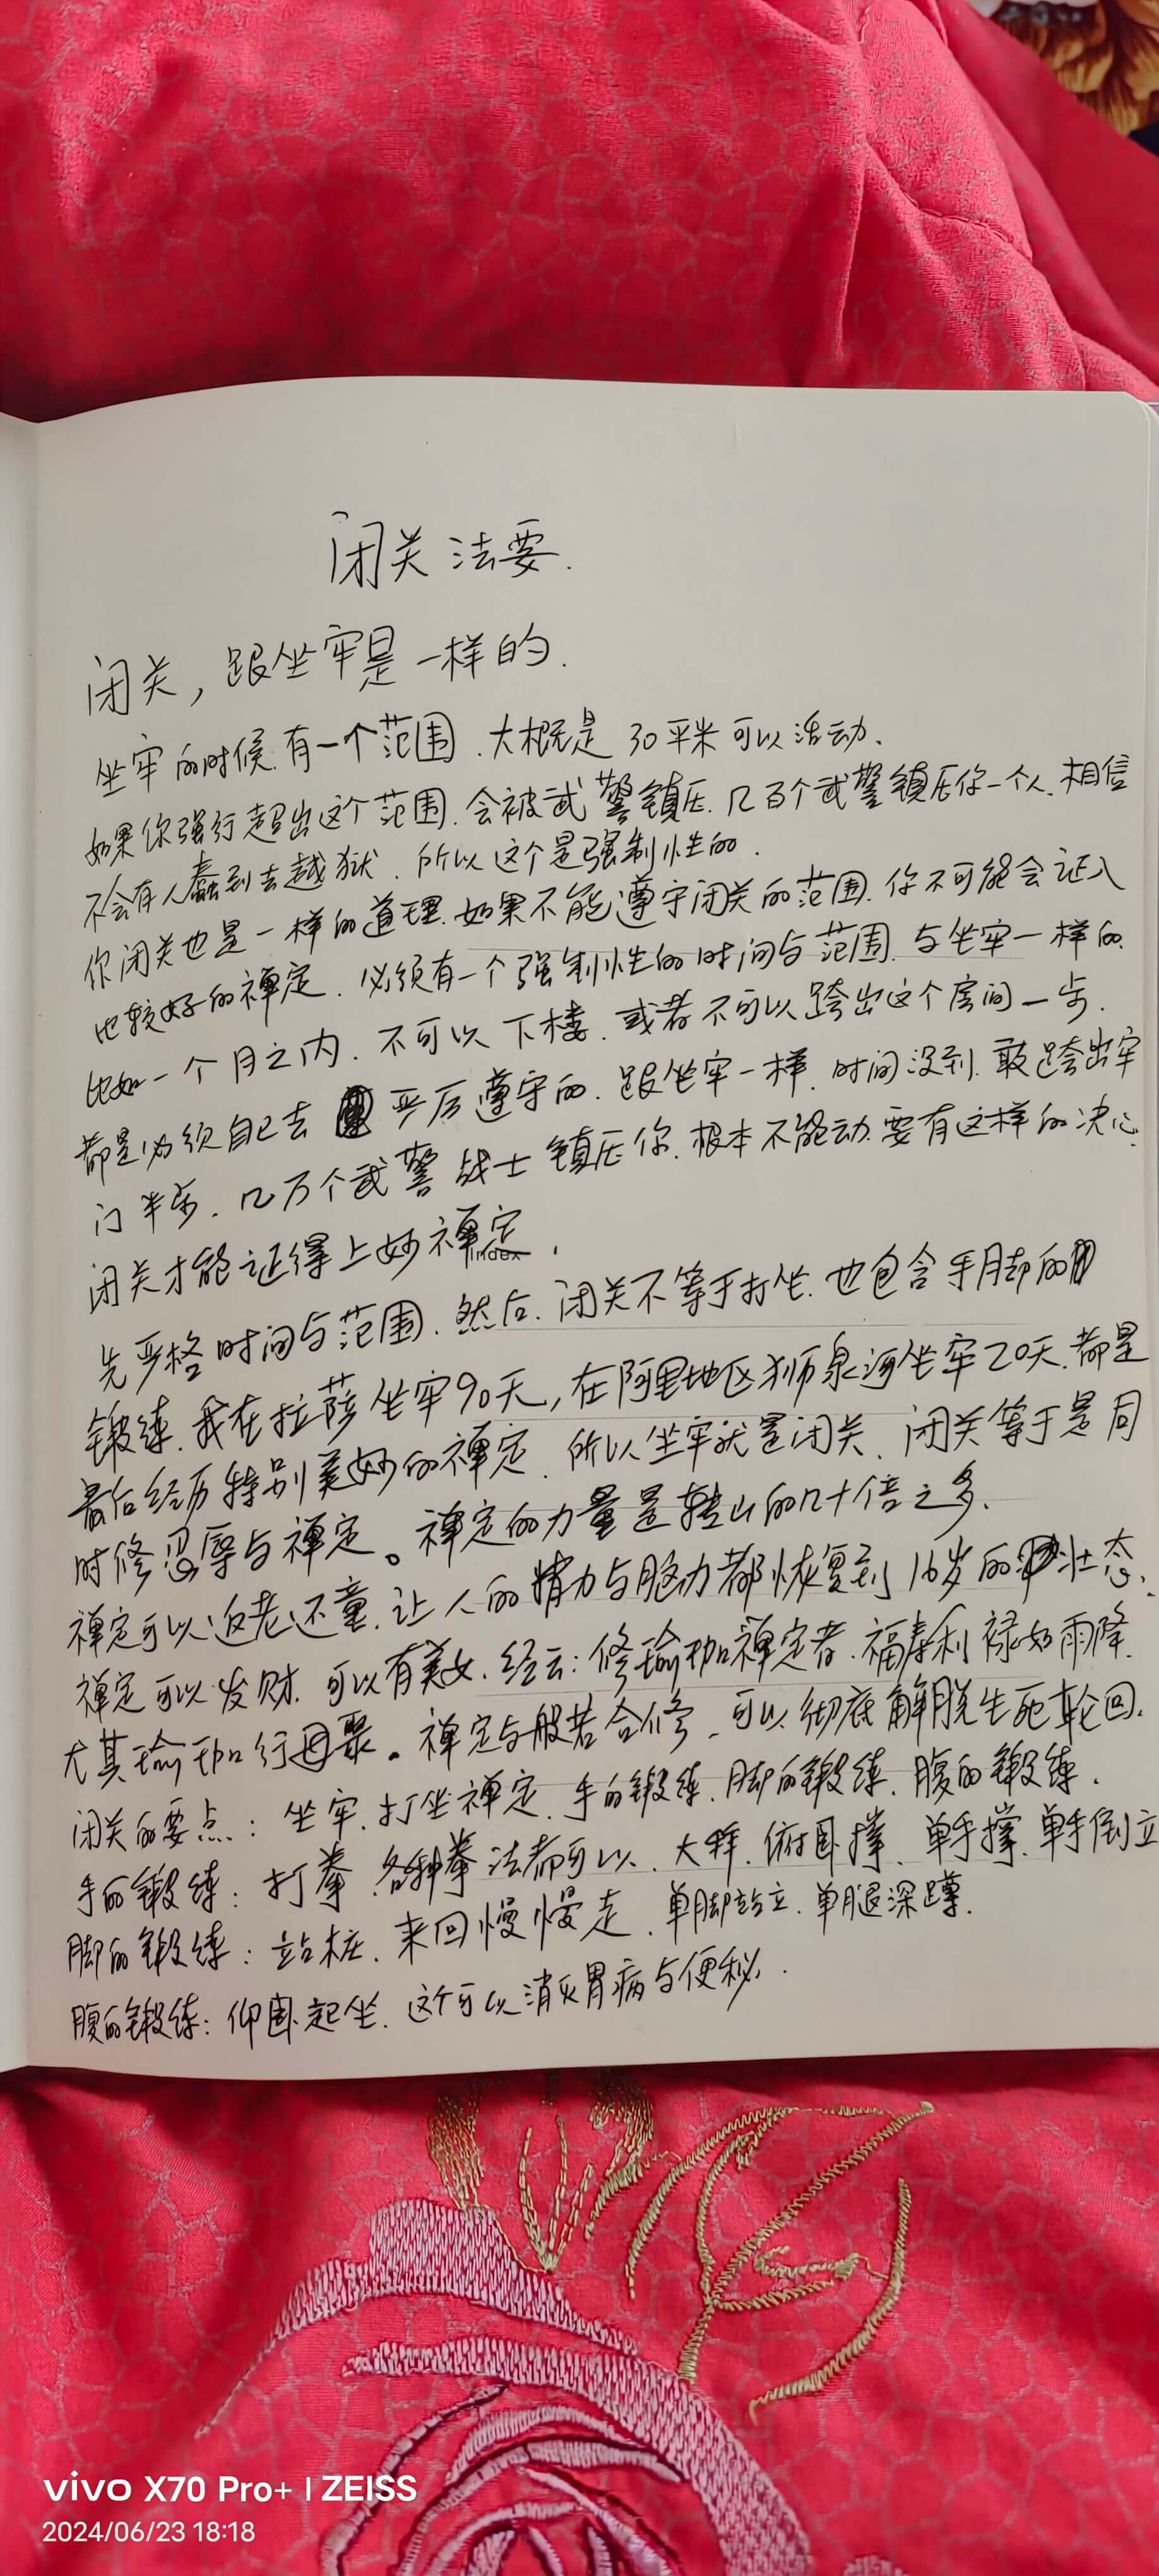 闭关法要.
闭关，跟坐牢是一样的.
坐牢的时候.有一个范围.大概是30平米可以活动.
如果你强行超出这个范围.会被武警镇压.几百个武警镇压你一个人.相信
不会有人蠢到去越狱.所以这个是强制性的.
你闭关也是一样的道理.如果不能遵守闭关的范围.你不可能会证入
比较好的禅定.必须有一个强制性的时间与范围.与坐牢一样的.
比如一个月之内.不可以下楼.或者不可以跨出这个房间一步.
都是必须自己去 严厉遵守的.跟坐牢一样.时间没到.敢跨出牢
门半步.几万个武警战士镇压你.根本不能动.要有这样的决心.
闭关才能证得上妙禅定.
index
先严格时间与范围.然后.闭关不等于打坐.也包含手脚的
锻练.我在拉萨坐牢90天，在阿里地区狮泉河坐牢20天.都是
最后经历特别美妙的禅定.所以坐牢就是闭关.闭关等于是同
时修忍辱与禅定。禅定的力量是转山的几十倍之多.
禅定可以返老还童.让人的精力与脑力都恢复到16岁的状态.
禅定可以发财.可以有美女.经云:修瑜珈禅定者.福寿利禄如雨降.
尤其瑜珈行母聚。禅定与般若合修.可以彻底解脱生死轮回.
闭关的要点:坐牢.打坐禅定.手的锻练.脚的锻练.腹的锻练.
手的锻练:打拳.各种拳法都可以.大拜.俯卧撑.单手撑.单手倒立
脚的锻练:站桩.来回慢慢走.单脚站立.单腿深蹲.
腹的锻练:仰卧起坐.这个可以消灭胃病与便秘.
vivo X70 Pro+ | ZEISS
2024/06/23 18:18